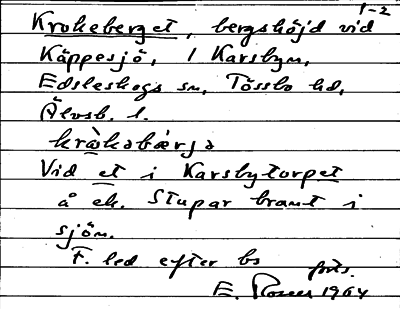 1-2
Krokeberget, bergshöjd vid
Käppesjö, 1 Karsbyn,
Edsleskogs sn, Tössbo hd,
Älvsb. l.
kràkəbǽrjə
Vid et i Karsbytorpet
å ek. Stupar brant i
sjön.
F. led efter bs
forts.
E. 1964